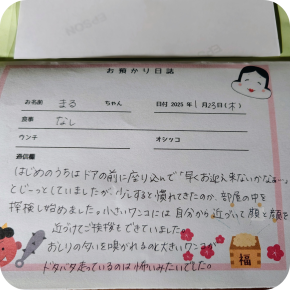 お預かり日誌
お名前 まる ちゃん 日付 2025年 1月23日(木)
食事 なし
ウンチ オシッコ
通信欄
はじめのうちはドアの前に座り込んで"早くお迎え来ないかなぁー。"
とじっとしていましたが、少しすると慣れてきたのか、部屋の中を
探検し始めました。小さいワンコには自分から近づいて顔と顔を
近づけてご挨拶もできていました。
おしりの匂いを嗅がれるのと大きいワンコが
ドタバタ走っているのは怖いみたいでした。
福